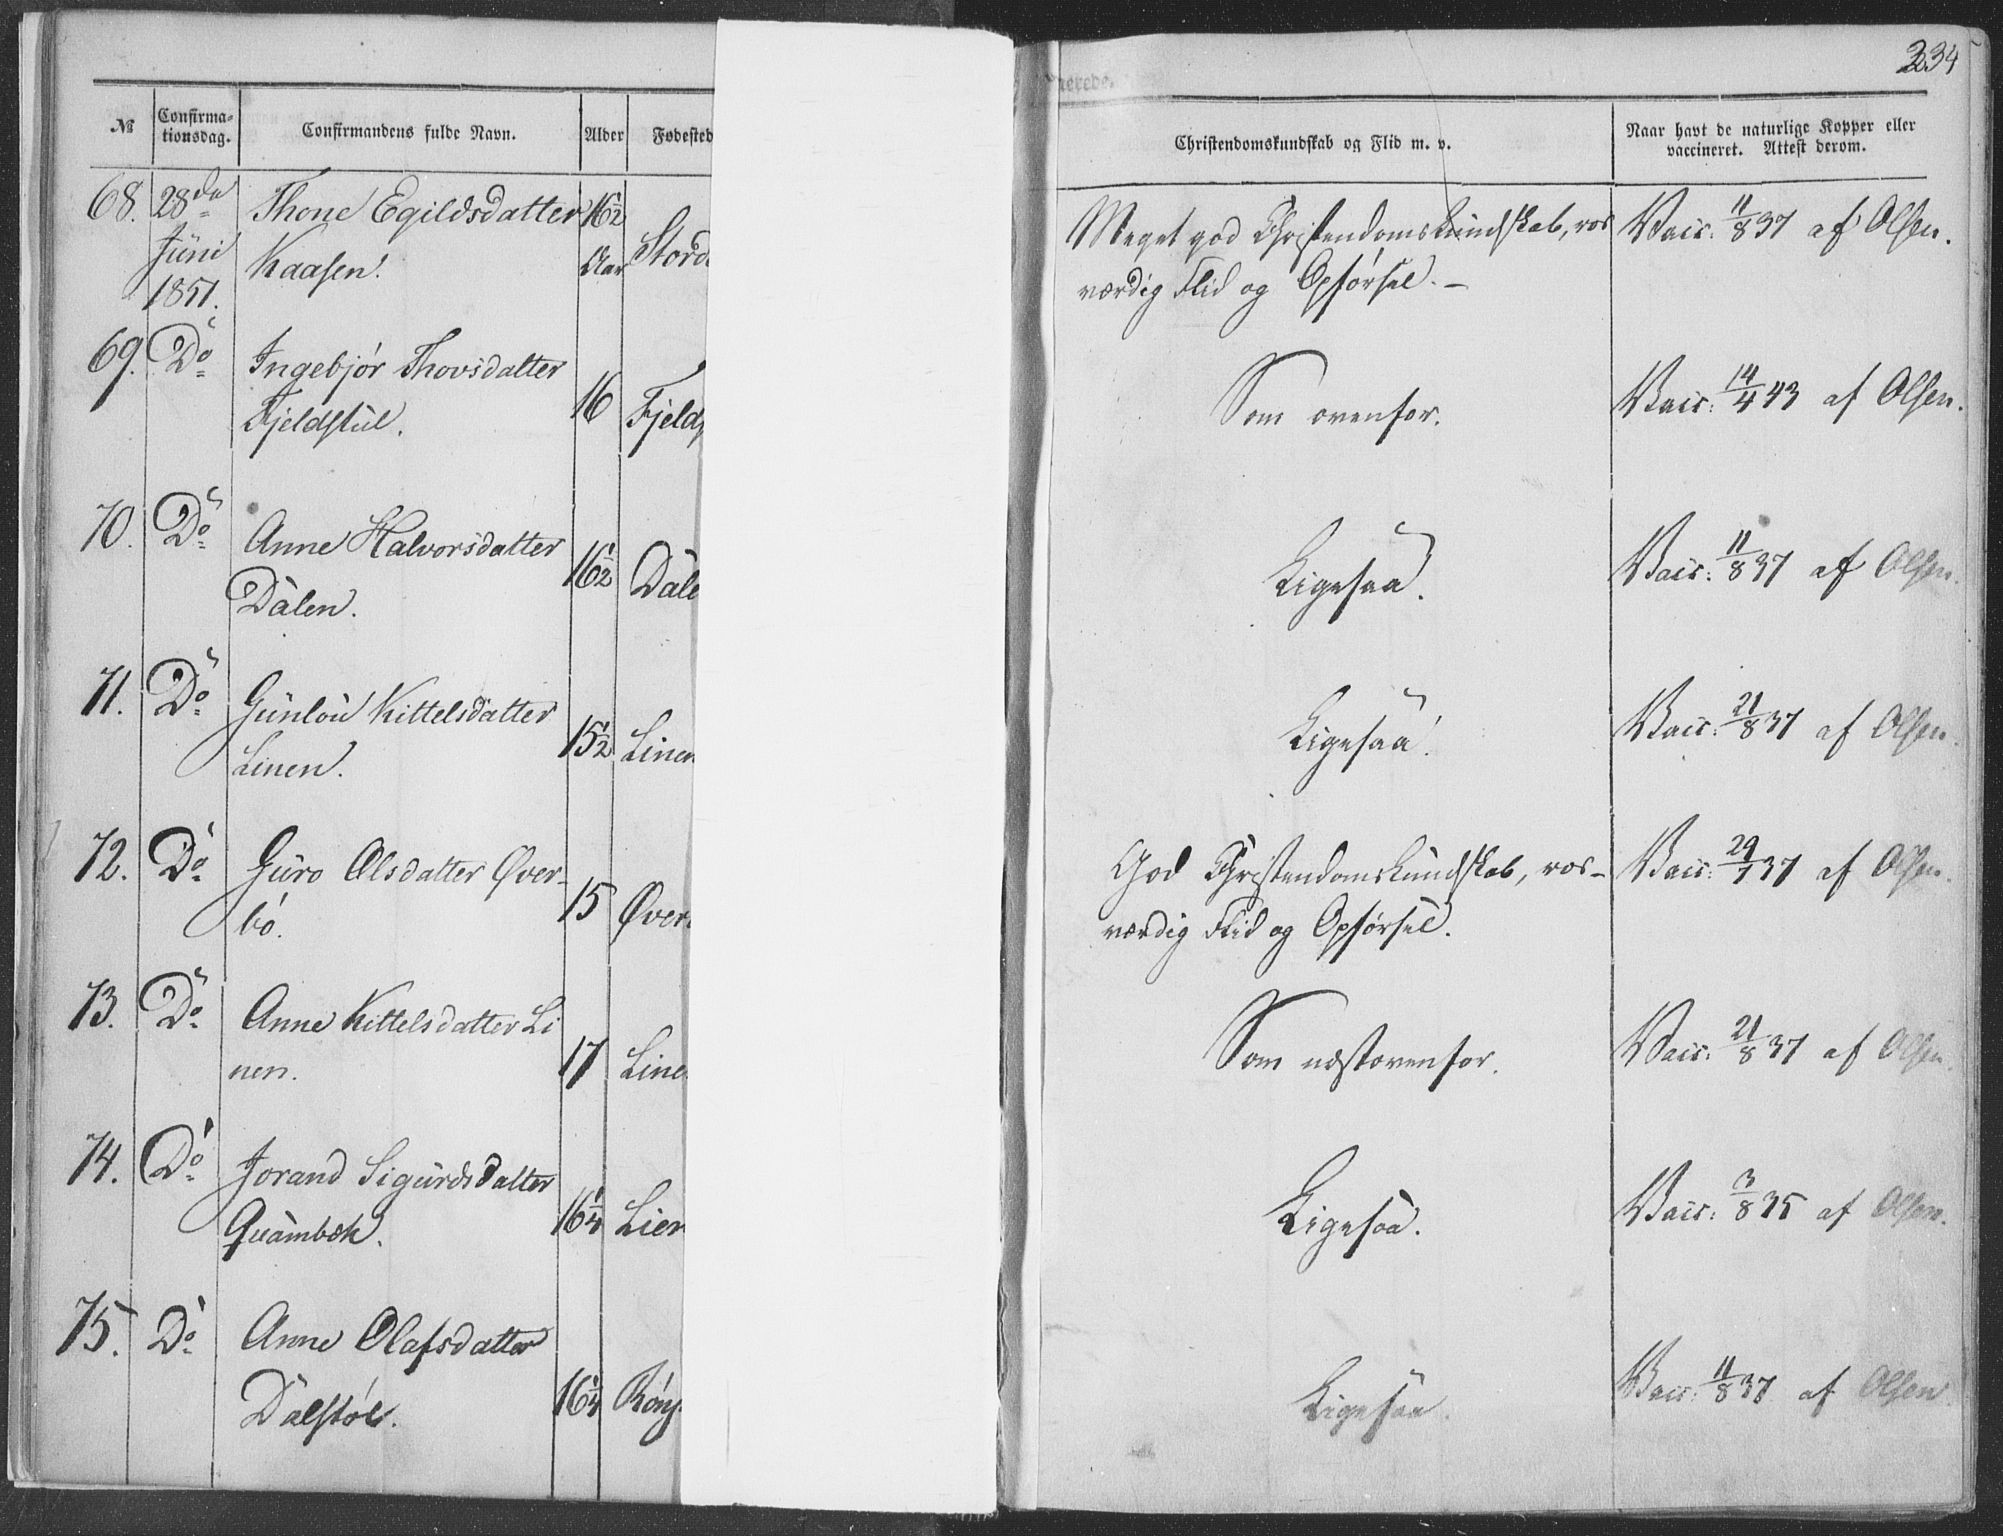 234
№ Confirma-tionsdag. Confirmandens fulde Navn. Alder Fødested
Christendomskundskab og Flid m. v. Naar havt de naturlige Kopper eller vaccineret. Attest derom.
68. 28de Thone Egildsdatter 16½
Juni Kaasen. Aar
1851.
Meget god Christendomskundskab, ros
værdig Flid og Opførsel. –
Vacc: 11/8 37 af Olsen.
69. Do Ingebjør Thovsdatter
Fjeldstul. 16 Fjelds
Som ovenfor. Vacc: 14/4 43 af Olsen.
70. Do Anne Halvorsdatter
Dalen. 16½ Dale
Ligesaa. Vacc: 11/8 37 af Olsen.
71. Do Gunlou Kittelsdatter
Linen. 15½ Linen
Ligesaa. Vacc: 21/8 37 af Olsen.
72. Do Guro Olsdatter Øver-
bø. 15 Øver
God Christendomskundskab, ros-
værdig Flid og Opførsel.
Vacc: 29/7 37 af Olsen.
73. Do Anne Kittelsdatter Li
nen. 17 Line
Som næstovenfor. Vacc: 21/8 37 af Olsen.
74. Do Jorand Sigurdsdatter
Quambæk. 16¼ Lier
Ligesaa. Vacc: 3/8 35 af Olsen.
75. Do Anne Olafsdatter
Dalstøl. 16¼
Ligesaa. Vacc: 11/8 37 af Olsen.